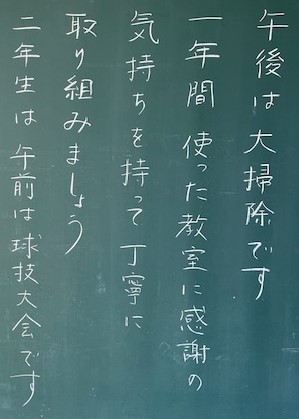 午後は大掃除です
一年間 使った教室に感謝の
気持ちを持って丁寧に
取り組みましょう
二年生は 午前は球技大会です